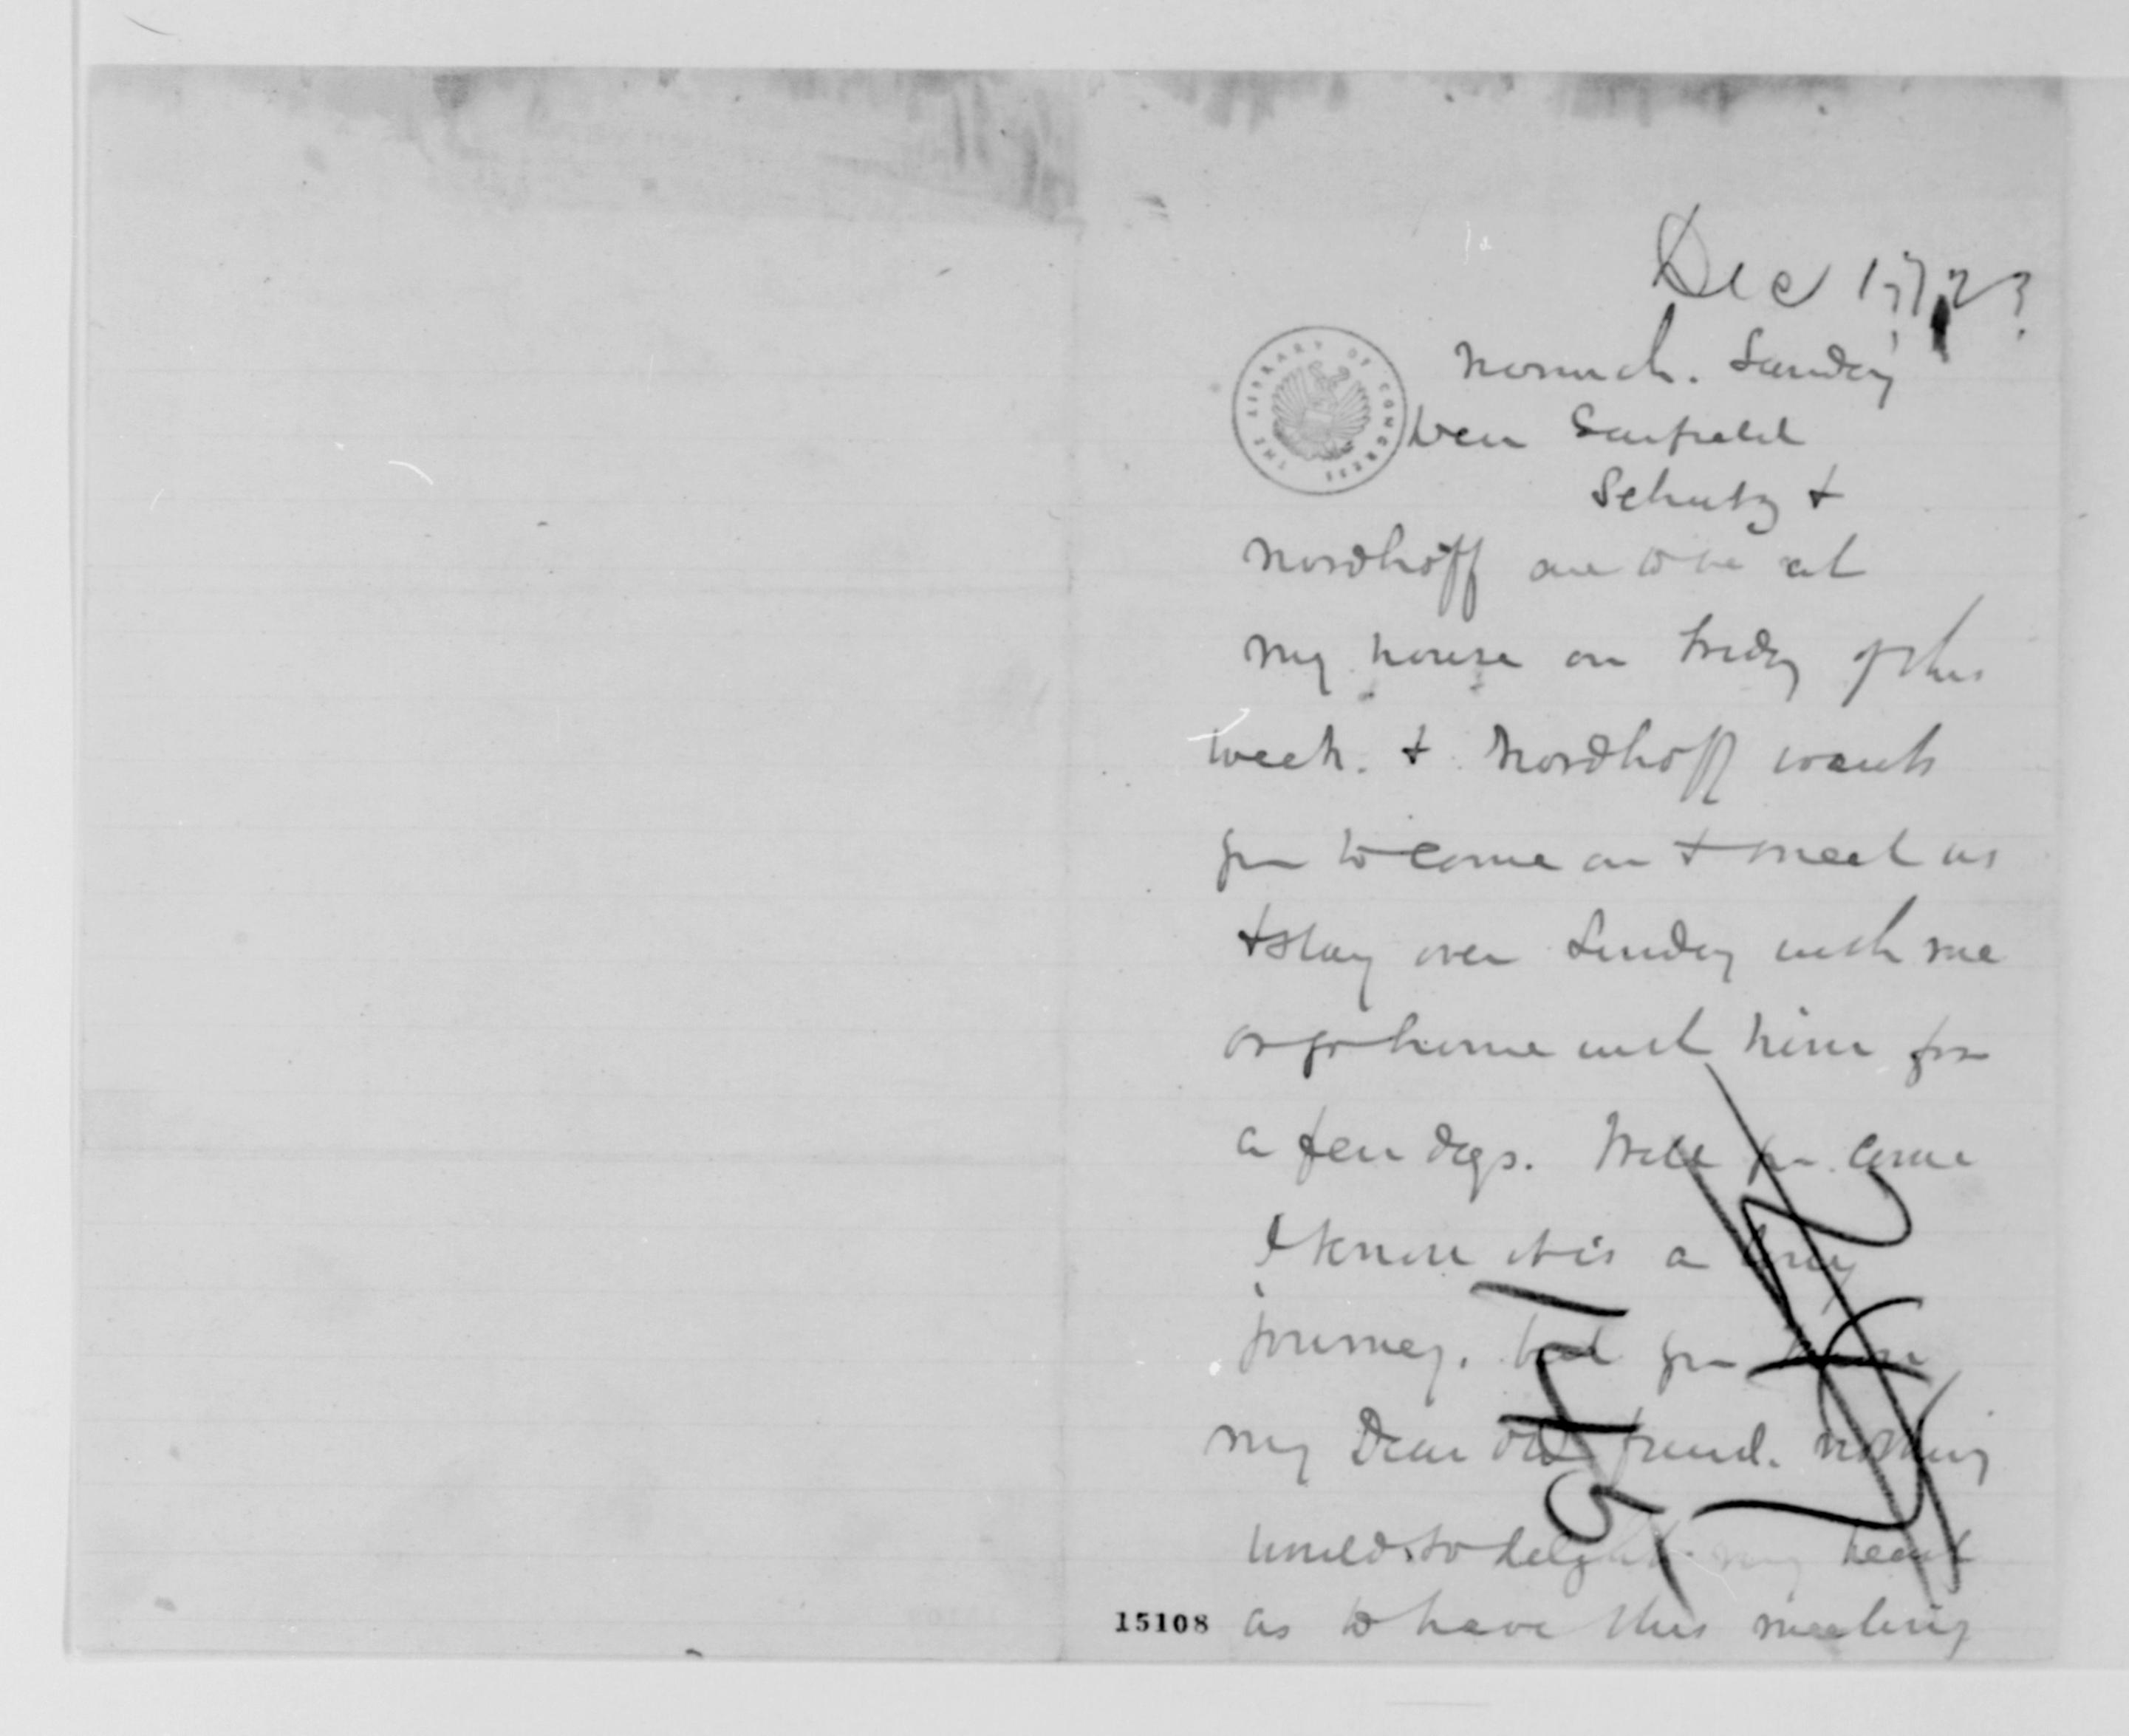 Dec 17/72?
THE LIBRARY OF CONGRESS
Norwich. Sunday
Dear Garfield
Schurz &
Nordhoff are to be at
my house on Friday of this
week. & Nordhoff wants
you to come on & meet us
& stay over Sunday with me
or go home with him for
a few days. Will you come
I know it is a long
journey. but you know
my Dear old friend. nothing
would so delight my heart
15108 as to have this meeting